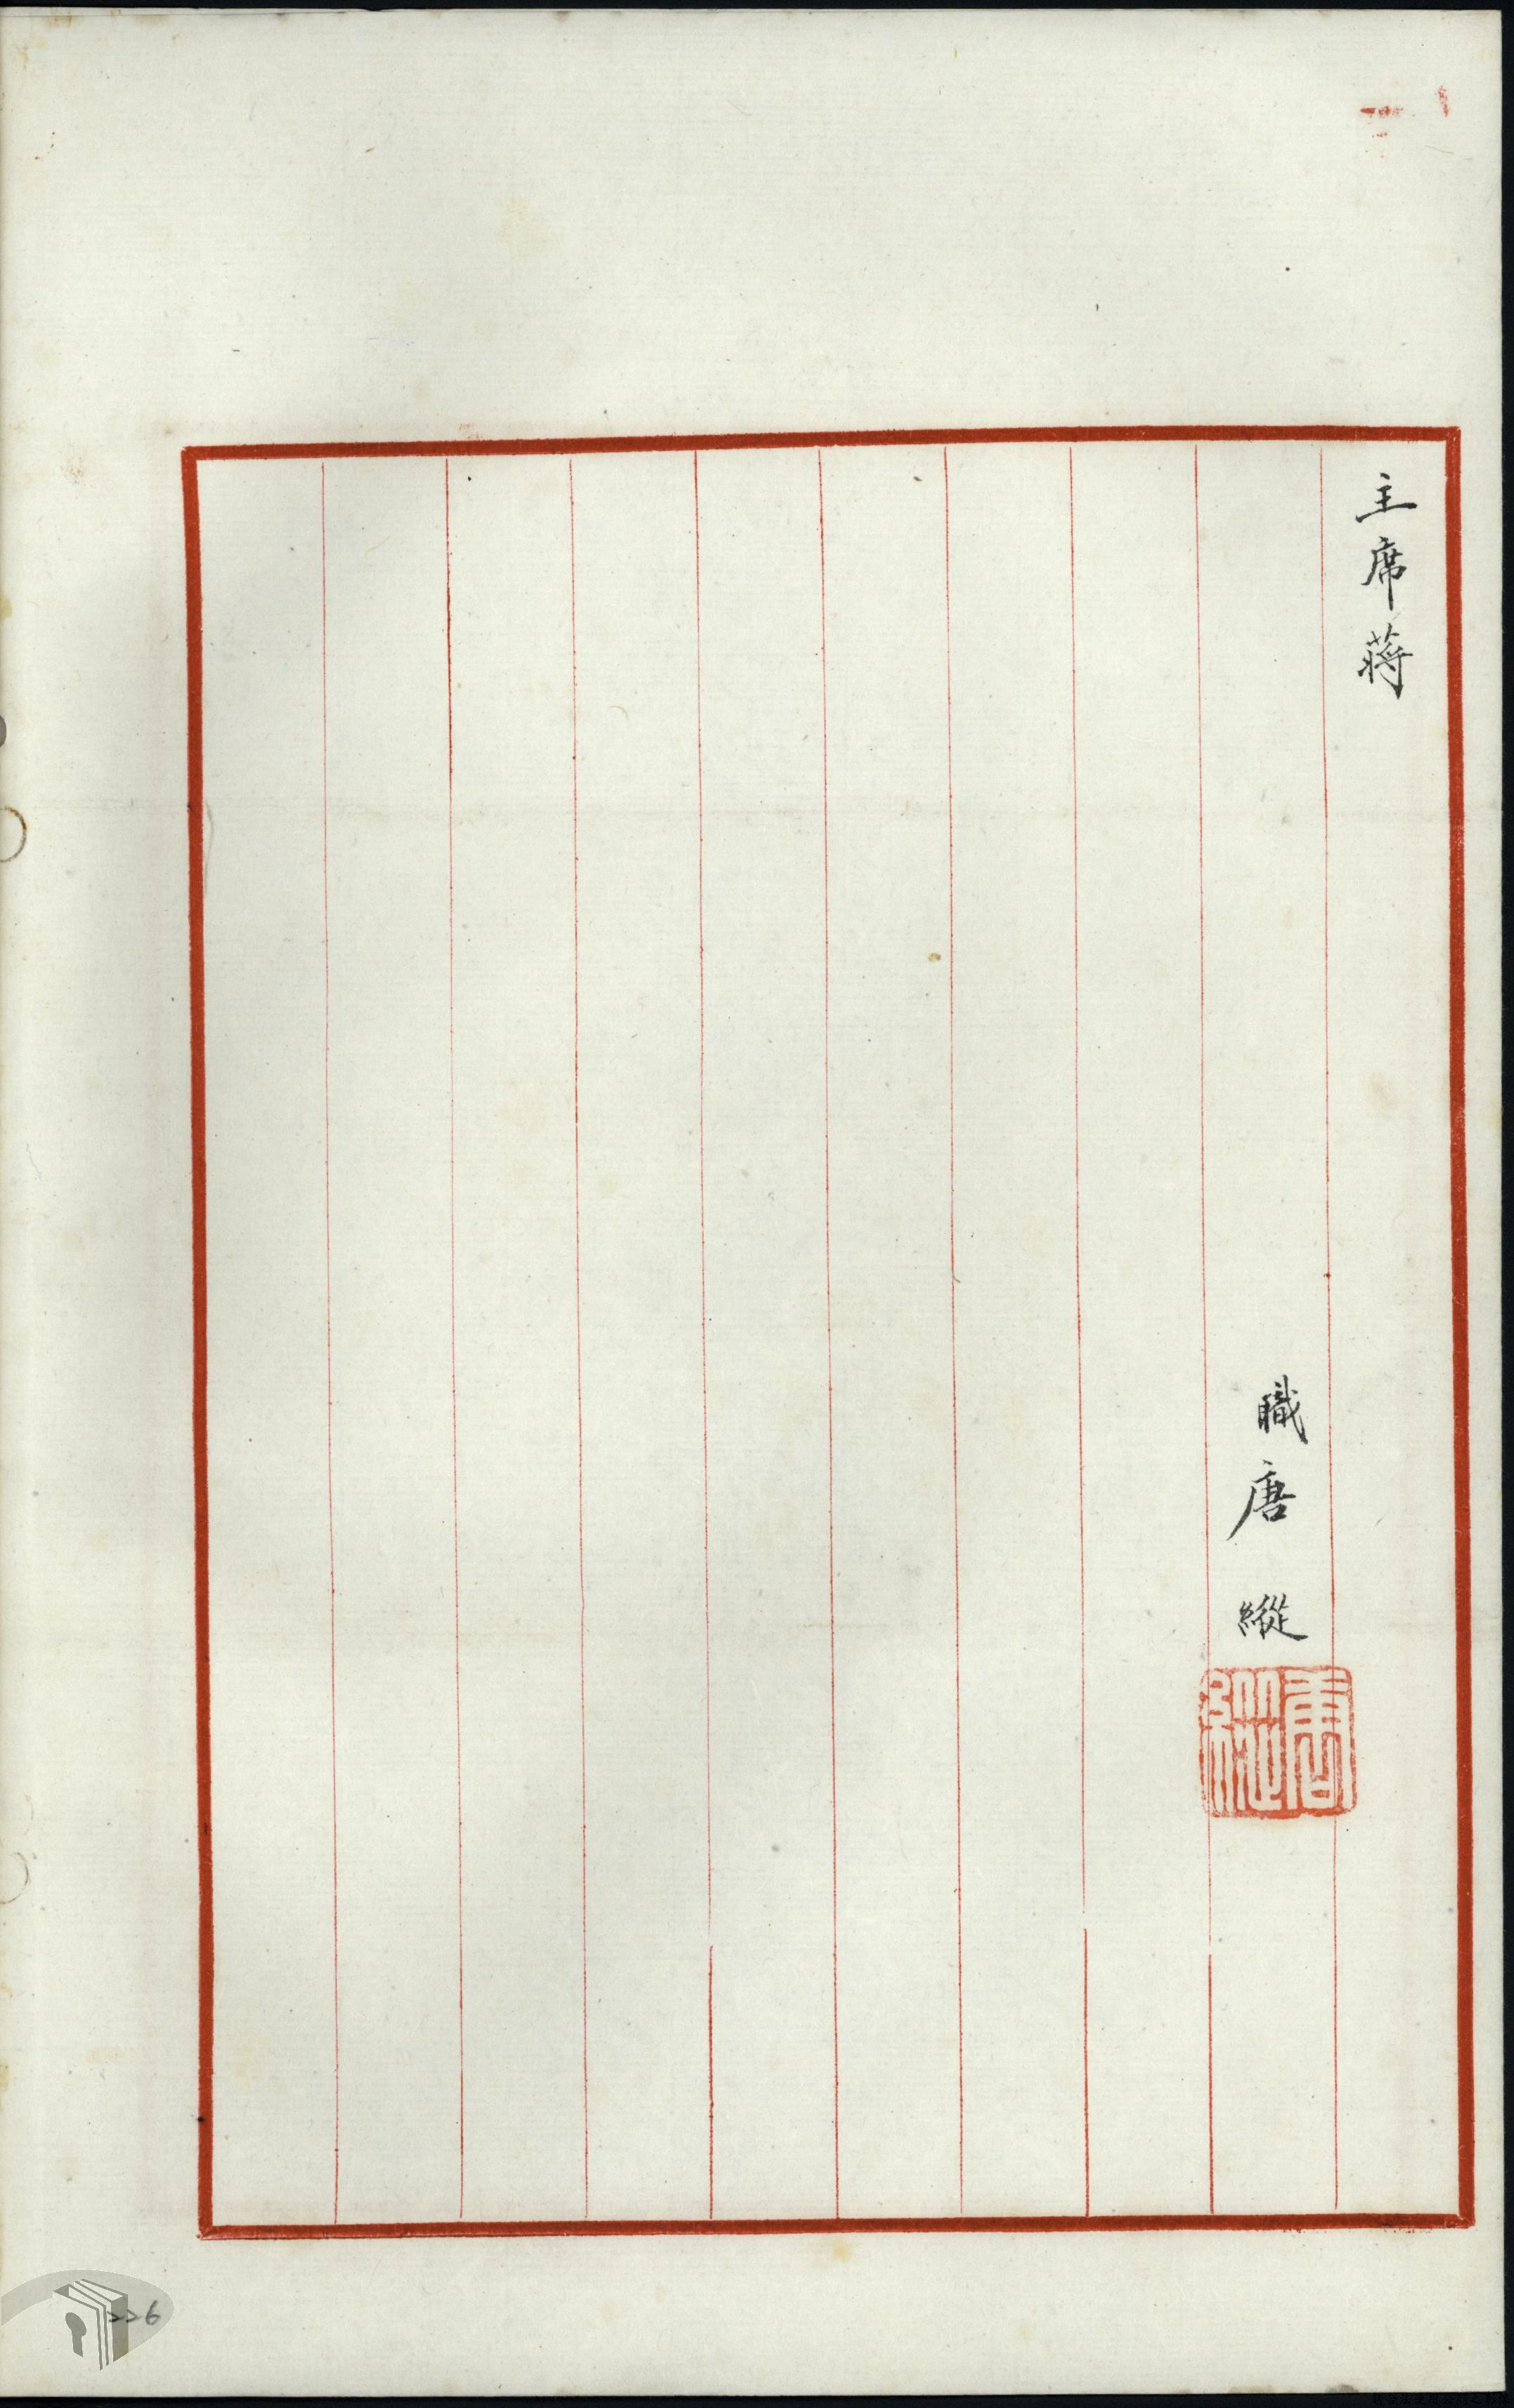 主席蔣
職唐縱
唐縱
226